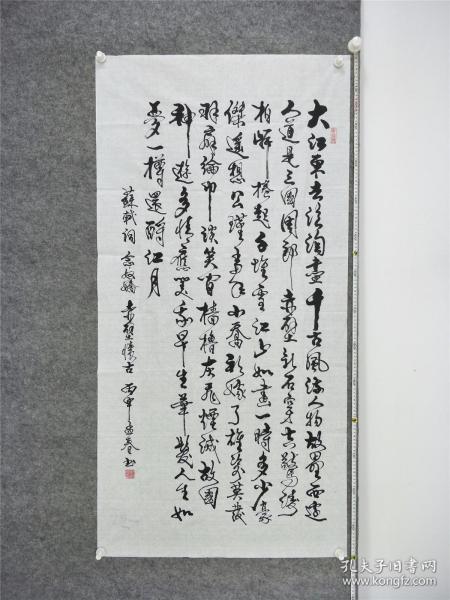 大江東去浪淘盡千古風流人物故壘西邊
人道是三國周郎赤壁亂石穿空驚濤
拍岸捲起千堆雪江山如畫一時多少豪
傑遙想公瑾當年小喬初嫁了雄姿英發
羽扇綸巾談笑間檣櫓灰飛煙滅故國
神遊多情應笑我早生華髮人生如
夢一樽還酹江月
蘇軾詞念奴嬌赤壁懷古丙申
孔夫子旧书网
www.kongfz.com